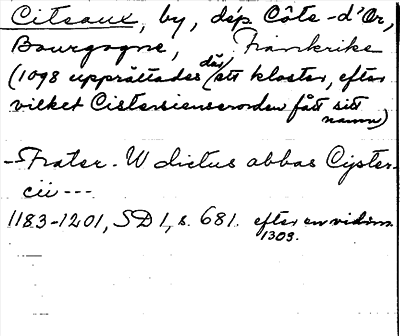 Citeaux, by, dép. Côte-d'Or,
Bourgogne, Frankrike
(1098 upprättades där ett kloster, efter
vilket Cistersienserorden fått sitt
namn)
-Frater. W dictus abbas Cyster-
cii ---
1183-1201, SD 1, s. 681. efter en vidim.
1309.